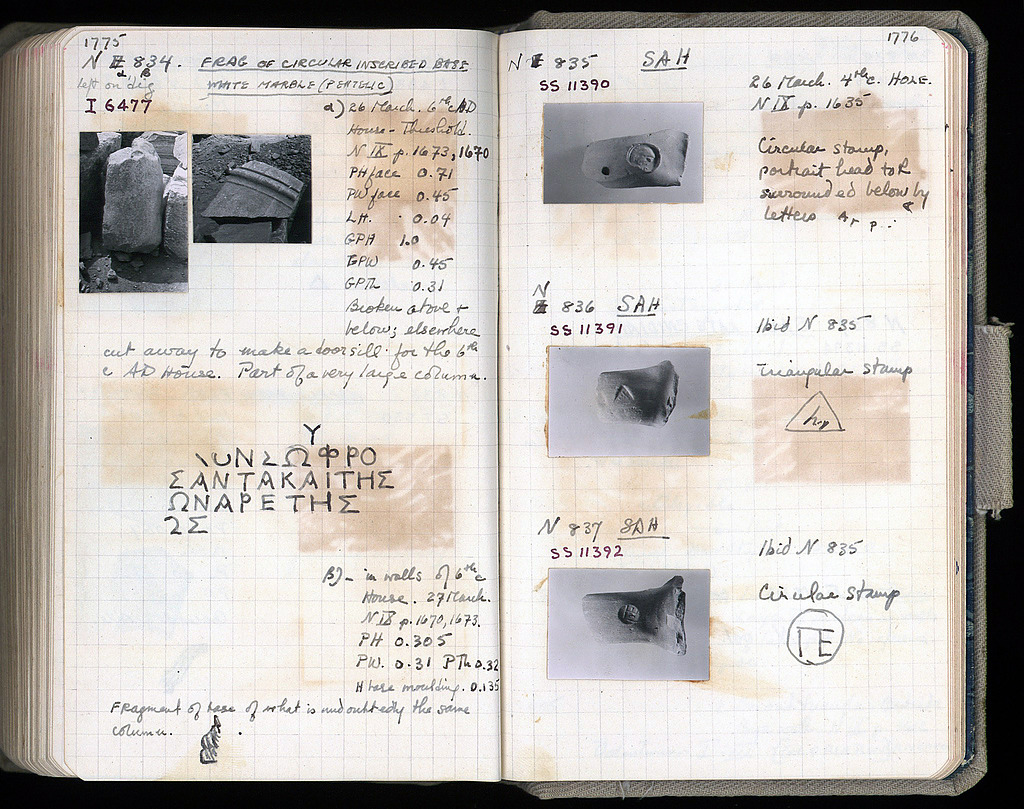 1775
N 834.
α, β
FRAG OF CIRCULAR INSCRIBED BASE
left on dig
WHITE MARBLE (PENTELIC)
I 6477
α) 26 March. 6th c AD
House - Threshold.
N IX p. 1673, 1670
PH face 0.71
PW face 0.45
LH. 0.04
GPH 1.0
GPW 0.45
GPTh 0.31
Broken above +
below; elsewhere
cut away to make a doorsill for the 6th
c AD House. Part of a very large column.
Υ
ΥΝΣΩΦΡΟ
ΣΑΝΤΑΚΑΙΤΗΣ
ΩΝΑΡΕΤΗΣ
ΩΣ
β) - in walls of 6th c
House. 27 March.
N IX p. 1670, 1673.
PH 0.305
PW. 0.31 PTh 0.32
H base moulding. 0.135
Fragment of base of what is undoubtedly the same
column.
1776
N 835 SAH
SS 11390
26 March. 4th c. HOLE.
N IX p. 1635
Circular stamp,
portrait head to R
surrounded below by
letters
N 836 SAH
SS 11391
Ibid N 835
Triangular stamp
N 837 SAH
SS 11392
Ibid N 835
Circular stamp
ΓΕ